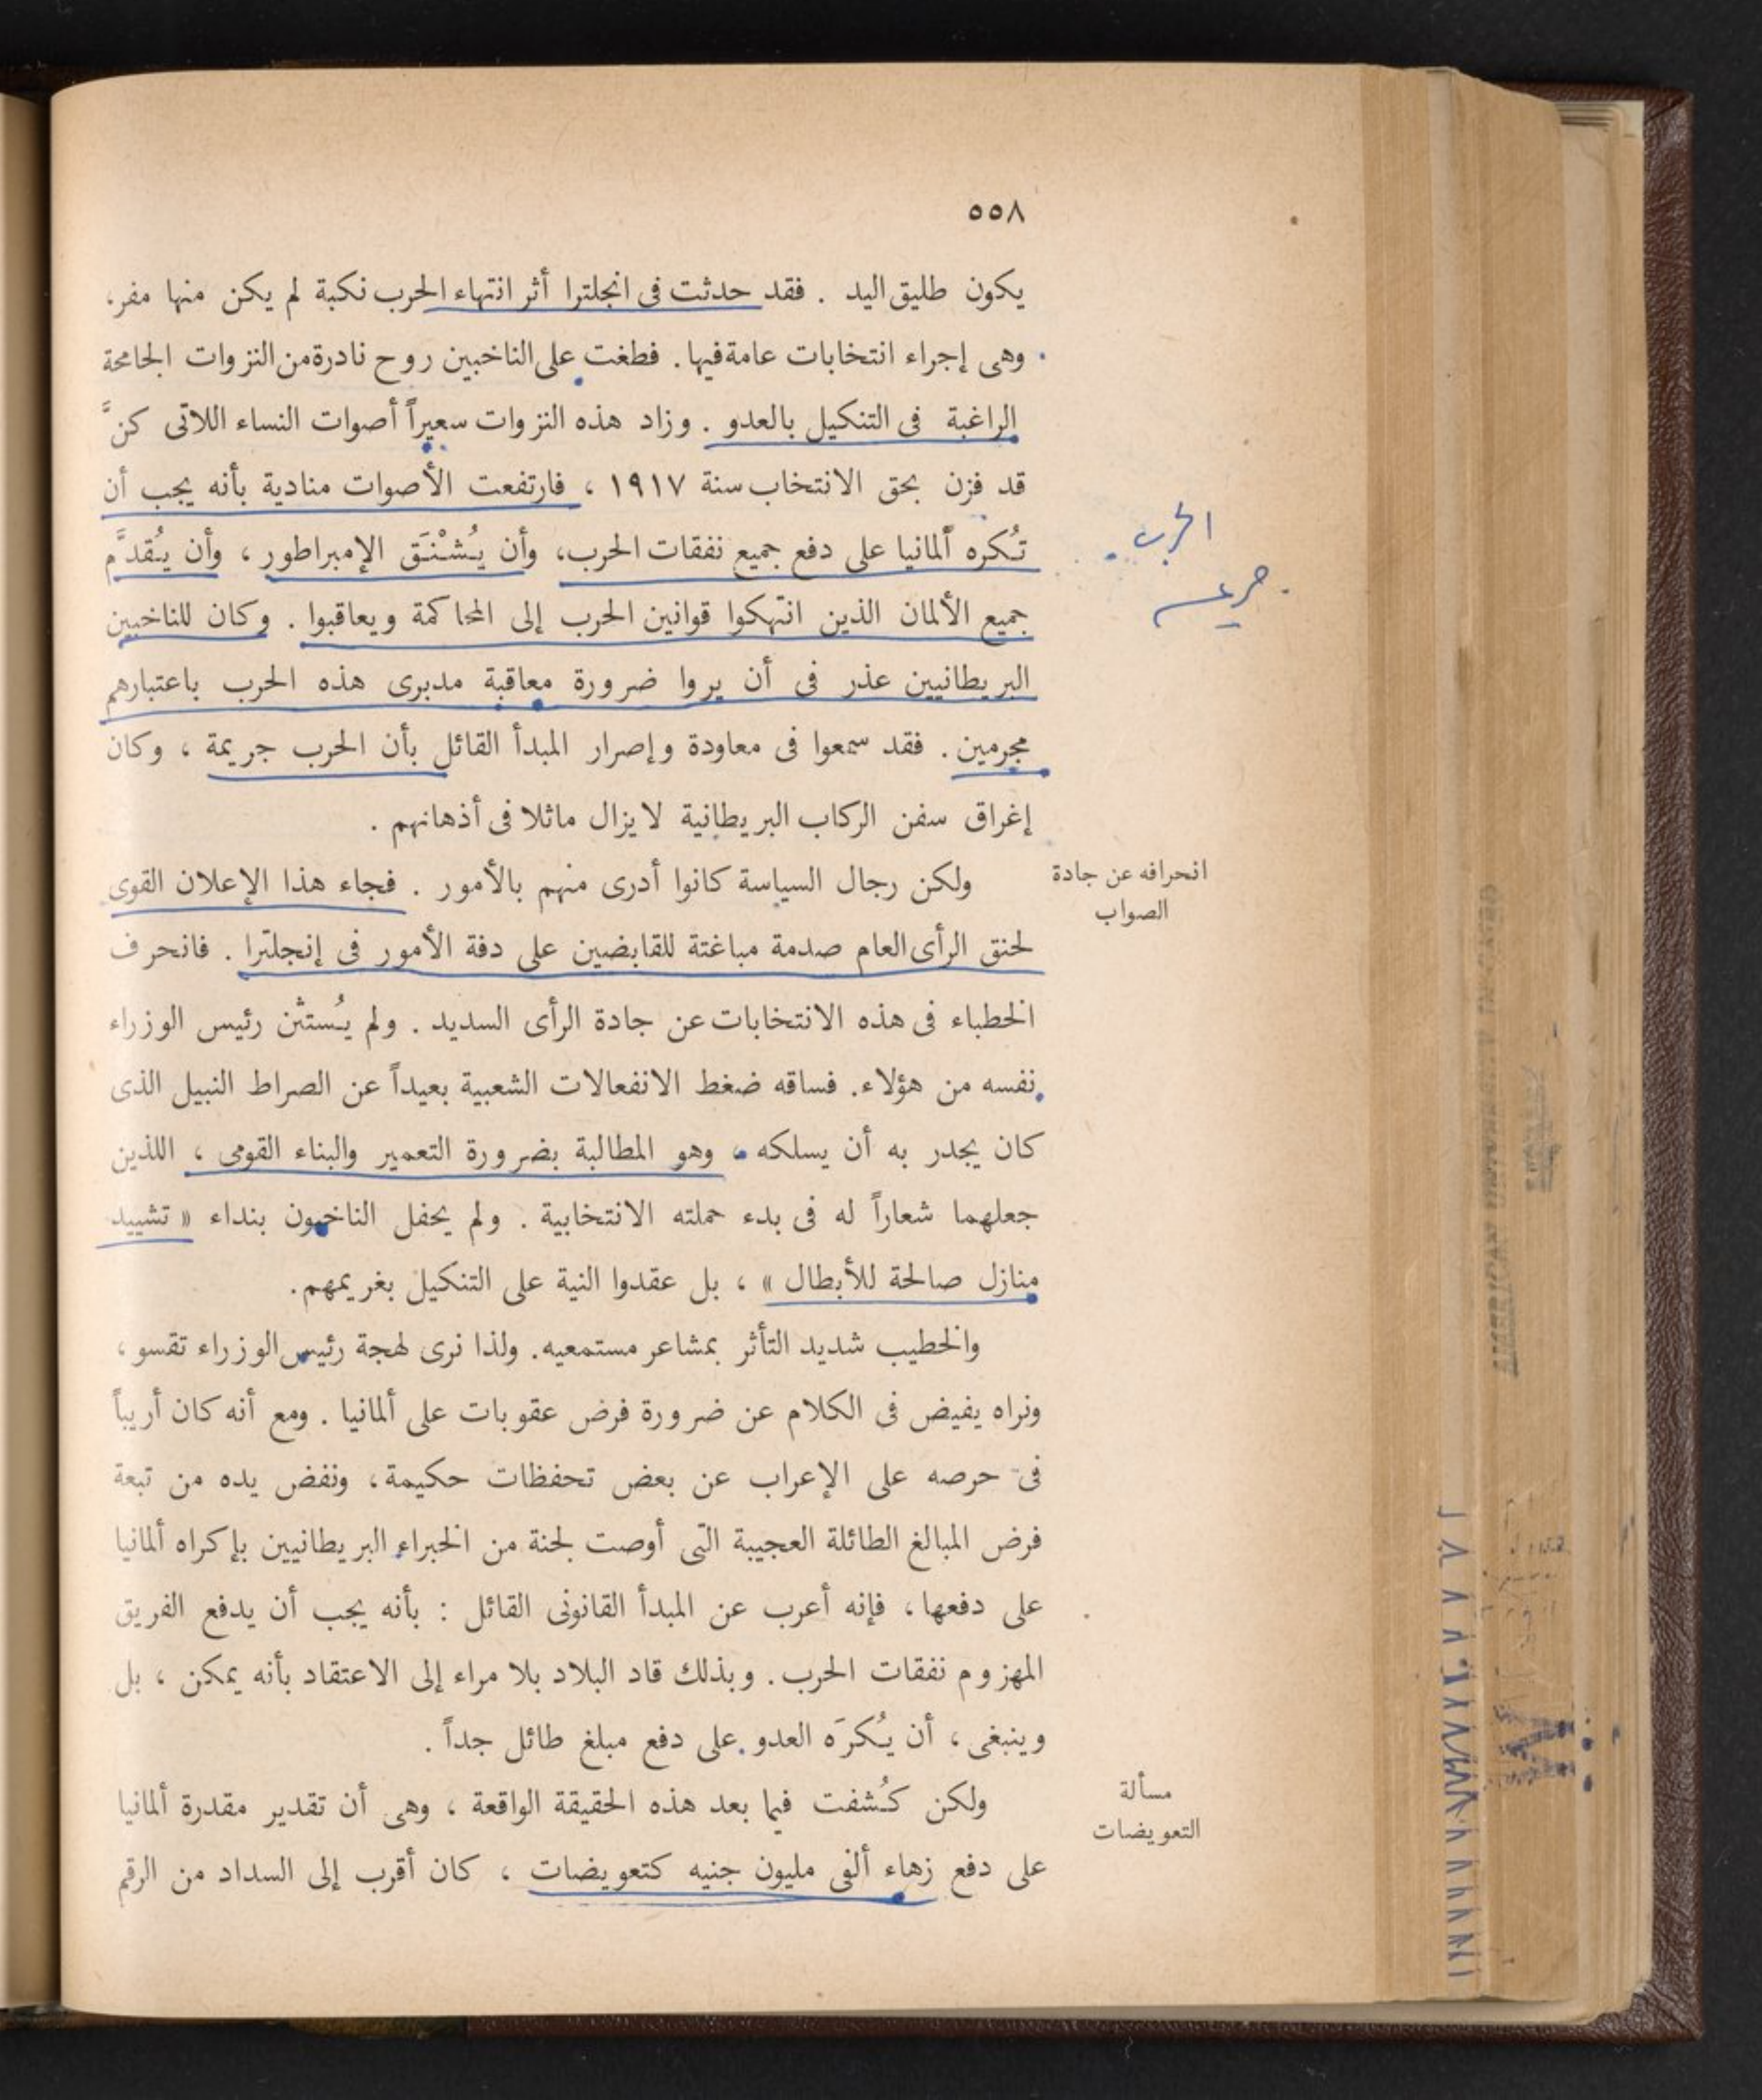 ٥٥٨
يكون طليق اليد . فقد حدثت فى انجلترا أثر انتهاء الحرب نكبة لم يكن منها مفر،
وهى إجراء انتخابات عامة فيها . فطغت على الناخبين روح نادرة من النزوات الجامحة
الراغبة فى التنكيل بالعدو . وزاد هذه النزوات سعيراً أصوات النساء اللاتى كنَّ
قد فزن بحق الانتخاب سنة ١٩١٧ ، فارتفعت الأصوات منادية بأنه يجب أن
تُكره ألمانيا على دفع جميع نفقات الحرب، وأن يُشْنَق الإمبراطور ، وأن يُقدَّم
جميع الألمان الذين انتهكوا قوانين الحرب إلى المحاكمة ويعاقبوا . وكان للناخبين
البريطانيين عذر فى أن يروا ضرورة معاقبة مدبرى هذه الحرب باعتبارهم
مجرمين . فقد سمعوا فى معاودة وإصرار المبدأ القائل بأن الحرب جريمة ، وكان
إغراق سفن الركاب البريطانية لا يزال ماثلا فى أذهانهم .
الحرب
انحرافه عن جادة
الصواب
ولكن رجال السياسة كانوا أدرى منهم بالأمور . فجاء هذا الإعلان القوى
لحنق الرأى العام صدمة مباغتة للقابضين على دفة الأمور فى إنجلترا . فانحرف
الخطباء فى هذه الانتخابات عن جادة الرأى السديد . ولم يُستثن رئيس الوزراء
نفسه من هؤلاء. فساقه ضغط الانفعالات الشعبية بعيداً عن الصراط النبيل الذى
كان يجدر به أن يسلكه ، وهو المطالبة بضرورة التعمير والبناء القومى ، اللذين
جعلهما شعاراً له فى بدء حملته الانتخابية . ولم يحفل الناخبون بنداء « تشييد
منازل صالحة للأبطال » ، بل عقدوا النية على التنكيل بغريمهم.
والخطيب شديد التأثر بمشاعر مستمعيه. ولذا نرى لهجة رئيس الوزراء تقسو ،
ونراه يفيض فى الكلام عن ضرورة فرض عقوبات على ألمانيا . ومع أنه كان أريباً
فى حرصه على الإعراب عن بعض تحفظات حكيمة، ونفض يده من تبعة
فرض المبالغ الطائلة العجيبة التى أوصت لجنة من الخبراء البريطانيين بإكراه ألمانيا
على دفعها ، فإنه أعرب عن المبدأ القانونى القائل : بأنه يجب أن يدفع الفريق
المهزوم نفقات الحرب . وبذلك قاد البلاد بلا مراء إلى الاعتقاد بأنه يمكن ، بل
وينبغى ، أن يُكرَه العدو على دفع مبلغ طائل جداً .
مسألة
التعويضات
ولكن كُشفت فيما بعد هذه الحقيقة الواقعة ، وهى أن تقدير مقدرة ألمانيا
على دفع زهاء ألفى مليون جنيه كتعويضات ، كان أقرب إلى السداد من الرقم